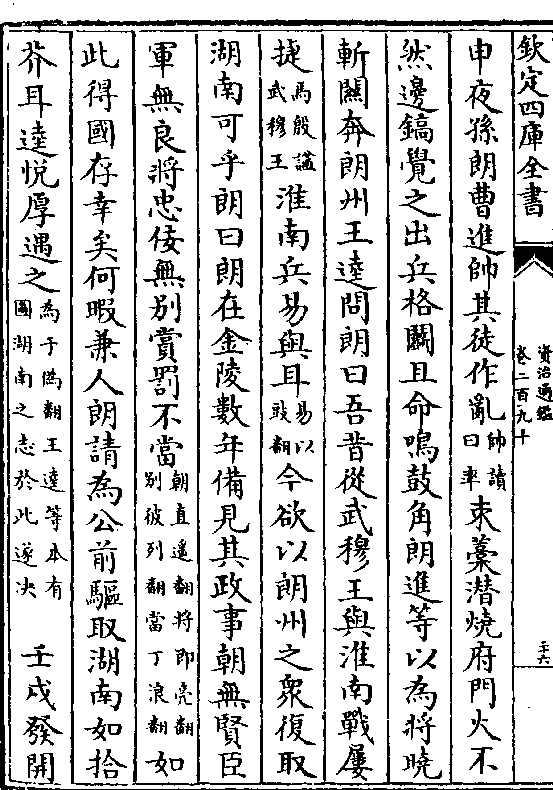 欽定四庫全書
資治通鑑
卷二百九十
申夜孫朗曹進帥其徒作亂帥讀曰率束藁潛燒府門火不
然邊鎬覺之出兵格鬭且命鳴鼓角朗進等以為將曉
斬關奔朗州王逵問朗曰吾昔從武穆王與淮南戰屢
捷馬殷諡武穆王淮南兵易與耳易以豉翻今欲以朗州之衆復取
湖南可乎朗曰朗在金陵數年備見其政事朝無賢臣
軍無良將忠佞無別賞罰不當朝直遥翻將即亮翻別彼列翻當丁浪翻如
此得國存幸矣何暇兼人朗請為公前驅取湖南如拾
芥耳逵悦厚遇之為于偽翻王逵等本有圖湖南之志於此遂决壬戌發開